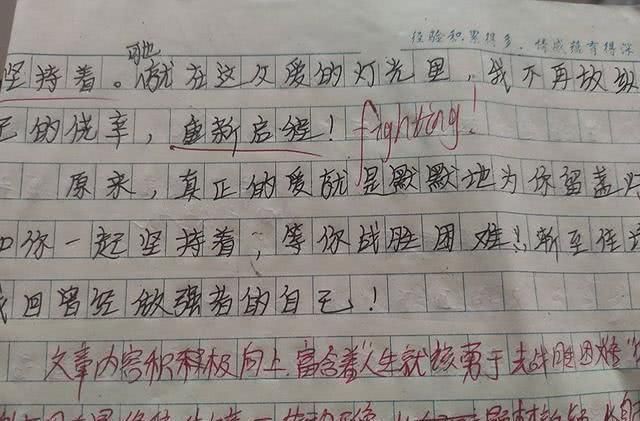 经验积累得多，情感培育得深
坚持着。她就在这父爱的灯光里，我不再放纵
己的侥幸，重新启程！fighting！
原来，真正的爱就是默默地为你留盏灯
和你一起坚持着，等你战胜困难！渐至佳
找回曾经做强者的自己！
文章内容积极向上，富含着"人生就该勇于去战胜困难"